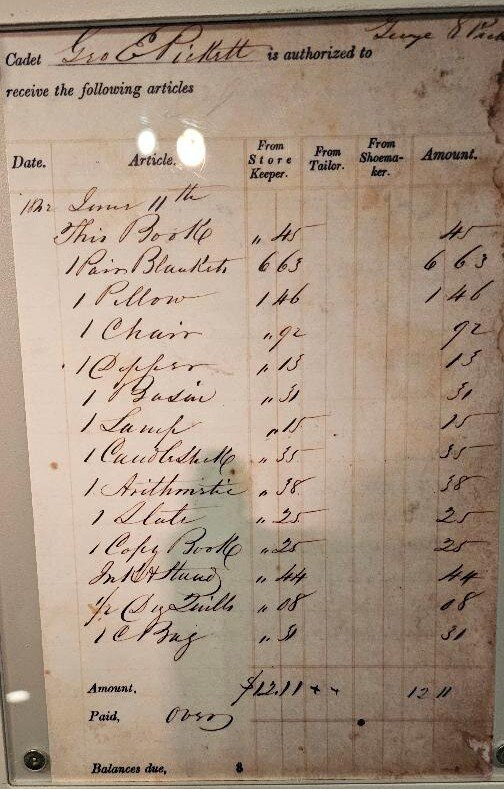 George E Pick
Cadet Geo E Pickett is authorized to
receive the following articles
Date. Article. From Store Keeper. From Tailor. From Shoema-ker. Amount.
1842 June 11th
This Book " 45 45
1 Pair Blankets 6 63 6 63
1 Pillow 1 46 1 46
1 Chair " 92 92
1 Dipper " 13 13
1 Basin " 31 31
1 Lamp " 15 15
1 Candlestick " 35 35
1 Arithmetic " 38 38
1 Slate " 25 25
1 Copy Book " 25 25
Ink & Stand " 44 44
1/2 Dz Quills " 08 08
1 C Bag " 31 31
Amount, $12.11 12 11
Paid, Over
Balances due, $